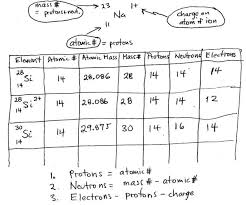 mass # = protons+neut. → 13 1+ charge on atom if ion
Na
11
atomic # = protons
Element Atomic # Atomic Mass Mass# Protons Neutrons Electrons
28 Si 14 14 28.086 28 14 14 14
28 Si 2+ 14 14 28.086 28 14 14 12
30 Si 14 29.975 30 14 16 14
1. Protons = atomic #
2. Neutrons = mass # - atomic #
3. Electrons - protons - charge